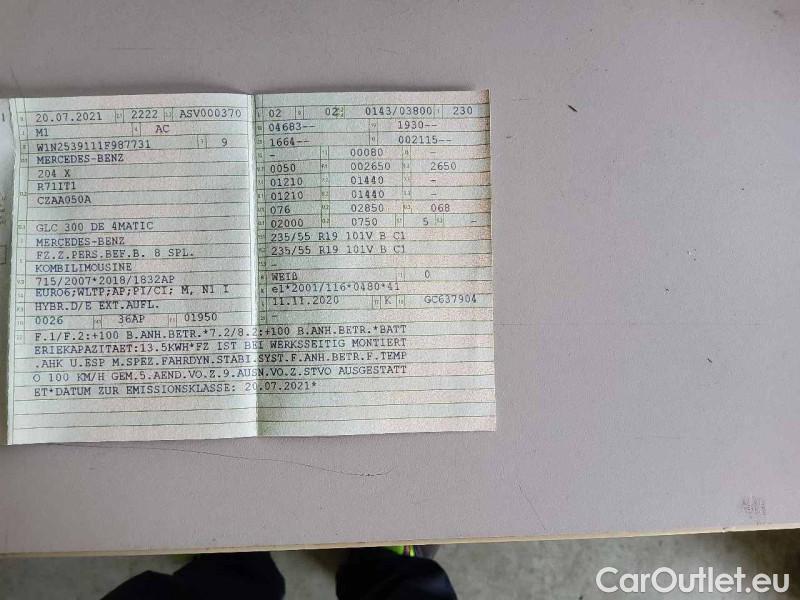 20.07.2021 2222 ASV000370
M1 AC
W1N2539111F987731 9
MERCEDES-BENZ
204 X
R71IT1
CZAA050A
GLC 300 DE 4MATIC
MERCEDES-BENZ
FZ.Z.PERS.BEF.B. 8 SPL.
KOMBILIMOUSINE
715/2007*2018/1832AP
EURO6;WLTP;AP;PI/CI; M, N1 I
HYBR.D/E EXT.AUFL.
0026 36AP 01950
02 02 0143/03800 230
04683-- 1930--
1664-- 002115--
- 00080 -
0050 002650 2650
01210 01440 -
01210 01440 -
076 02850 068
02000 0750 5 -
235/55 R19 101V B C1
235/55 R19 101V B C1
-
WEIß 0
e1*2001/116*0480*41
11.11.2020 K GC637904
F.1/F.2:+100 B.ANH.BETR.*7.2/8.2:+100 B.ANH.BETR.*BATT
ERIEKAPAZITAET:13.5KWH*FZ IST BEI WERKSSEITIG MONTIERT
.AHK U.ESP M.SPEZ.FAHRDYN.STABI.SYST.F.ANH.BETR.F.TEMP
O 100 KM/H GEM.5.AEND.VO.Z.9.AUSN.VO.Z.STVO AUSGESTATT
ET*DATUM ZUR EMISSIONSKLASSE: 20.07.2021*
CarOutlet.eu